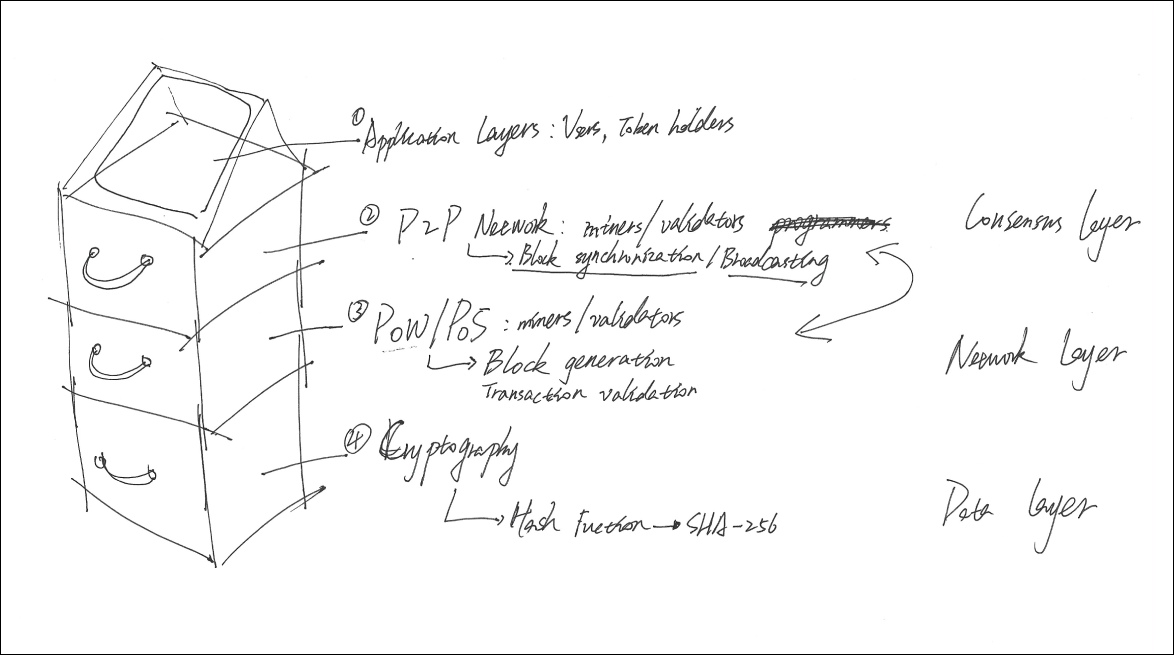 ① Application Layers : Users, Token holders
② P2P Network : miners/validators
Block synchronization / Broadcasting
Consensus Layer
③ PoW/PoS : miners/validators
Block generation
Transaction validation
Network Layer
④ Cryptography
Hash Fuction → SHA-256
Data Layer